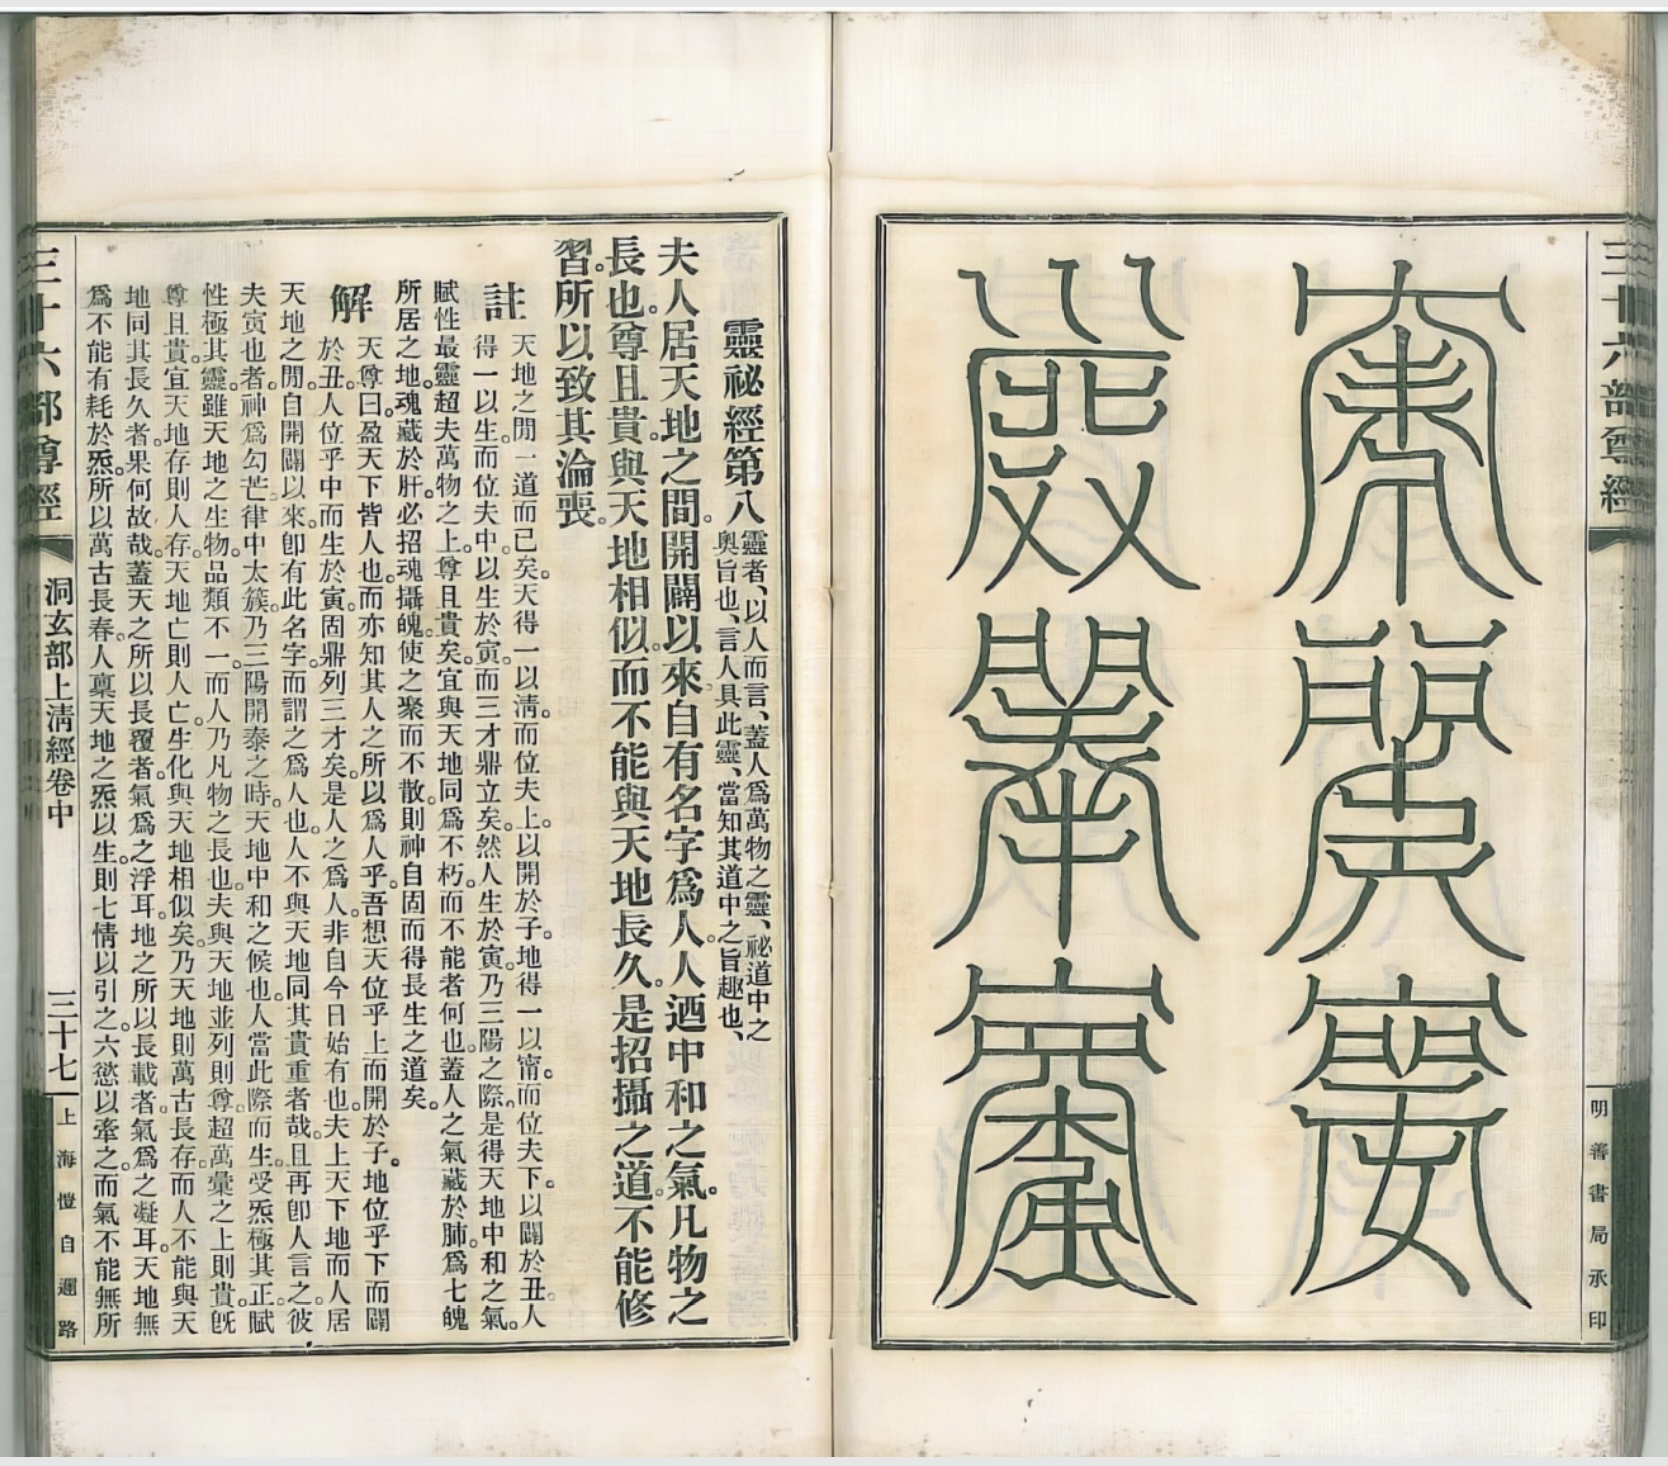 三十六部尊經
明善書局承印
靈祕經第八
靈者、以人而言、蓋人爲萬物之靈、祕道中之
奥旨也、言人具此靈、當知其道中之旨趣也、
夫人居天地之間。開闢以來自有名字爲人。人迺中和之氣。凡物之
長也。尊且貴。與天地相似。而不能與天地長久。是招攝之道。不能修
習。所以致其淪喪。
註
天地之閒一道而已矣。天得一以淸。而位夫上。以開於子。地得一以甯。而位夫下。以闢於丑。人
得一以生。而位夫中。以生於寅。而三才鼎立矣。然人生於寅。乃三陽之際。是得天地中和之氣。
賦性最靈。超夫萬物之上。尊且貴矣。宜與天地同爲不朽。而不能者何也。蓋人之氣藏於肺。爲七魄
所居之地。魂藏於肝。必招魂攝魄。使之聚而不散。則神自固而得長生之道矣。
解
天尊曰。盈天下皆人也。而亦知其人之所以爲人乎。吾想天位乎上而開於子。地位乎下而闢
於丑。人位乎中而生於寅。固鼎列三才矣。是人之爲人。非自今日始有也。夫上天下地而人居
天地之閒。自開闢以來。卽有此名字。而謂之爲人也。人不與天地同其貴重者哉。且再卽人言之。彼
夫寅也者。神爲勾芒。律中太簇。乃三陽開泰之時。天地中和之候也。人當此際而生。受炁極其正。賦
性極其靈。雖天地之生物。品類不一。而人乃凡物之長也。夫與天地並列則尊。超萬彙之上則貴。旣
尊且貴。宜天地存則人存。天地亡則人亡。生化與天地相似矣。乃天地則萬古長存。而人不能與天
地同其長久者。果何故哉。蓋天之所以長覆者。氣爲之浮耳。地之所以長載者。氣爲之凝耳。天地無
爲不能有耗於炁。所以萬古長春。人稟天地之炁以生。則七情以引之。六慾以牽之。而氣不能無所
三十六部尊經
洞玄部上淸經卷中
三十七
上海愷自邇路